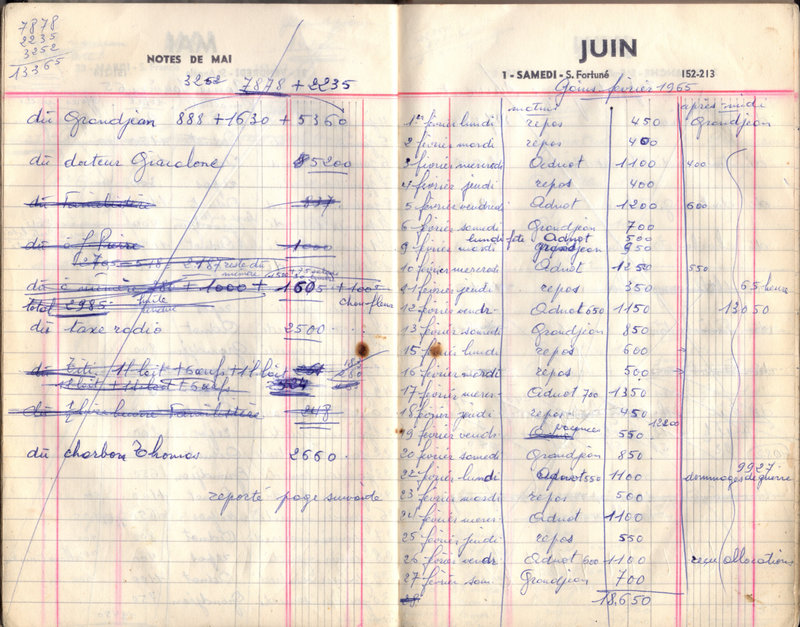 7878
2235
3252
13365
NOTES DE MAI
3252 7878 + 2235
dû Grandjean 888 + 1630 + 5360
dû docteur Giacalone 5200
dû Familistère 837
dû à St Pierre 1000
2705 = 518 2187 reste dû
dû à mémère + 1000 + 1605 + 1005
total 2985 choufleur
dû taxe radio 2500
dû Titi + 1l lait + 6 œufs + 1l lait
1l lait + 1l lait + 6 œufs
dû Familistère 248
dû charbon Thomas 2660
reporté page suivante
JUIN
1 - SAMEDI - S. Fortuné 152-213
Gains février 1965
matin après-midi
1er février lundi repos 450 Grandjean
2 février mardi repos 400
3 février mercredi Adnot 1100 400
4 février jeudi repos 400
5 février vendredi Adnot 1200 600
6 février samedi Grandjean 700
lundi fête Adnot 500
9 février mardi Grandjean 950
10 février mercredi Adnot 1250 550
11 février jeudi repos 350 65 heures
12 février vendr. Adnot 650 1150 13050
13 février samedi Grandjean 850
15 février lundi repos 600
16 février mardi repos 500
17 février mercr. Adnot 700 1350
18 février jeudi repos 450
19 février vendr. 550 12200
20 février samedi Grandjean 850
22 février lundi Adnot 550 1100 9927 dommages de guerre
23 février mardi repos 500
24 février mercr. Adnot 1100
25 février jeudi repos 550
26 février vendr Adnot 600 1100 reçu allocations
27 février sam. Grandjean 700
28 18.650